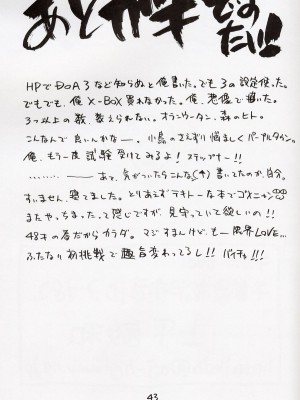 あとがきですたい!!
HPでDOA3など知らぬと俺書いた。でも3の設定使った。
でもでも、俺X-BOX買れなかった。俺、想像で描いた。
3つ以上の数、数えられない。オランウータン、森のヒト。
こんなんで良いんかなー。小鳥のさえずり悩ましくパープルタウン。
俺、もう一度試験受けてみるよ! ステップナー!!
……… ーーあて、気がついたらこんな(4)書いてたのか、自分。
すいません、寝てました。とりあえずテキトーな本でゴメニョン
またや、ちまったって感じですが、見守っていて欲しいの!!
48才の春だからカラダ。マジすまんけど、もー限界LOVE…
ふたなり初挑戦で趣旨変わってるし!! バイチャ!!!
43